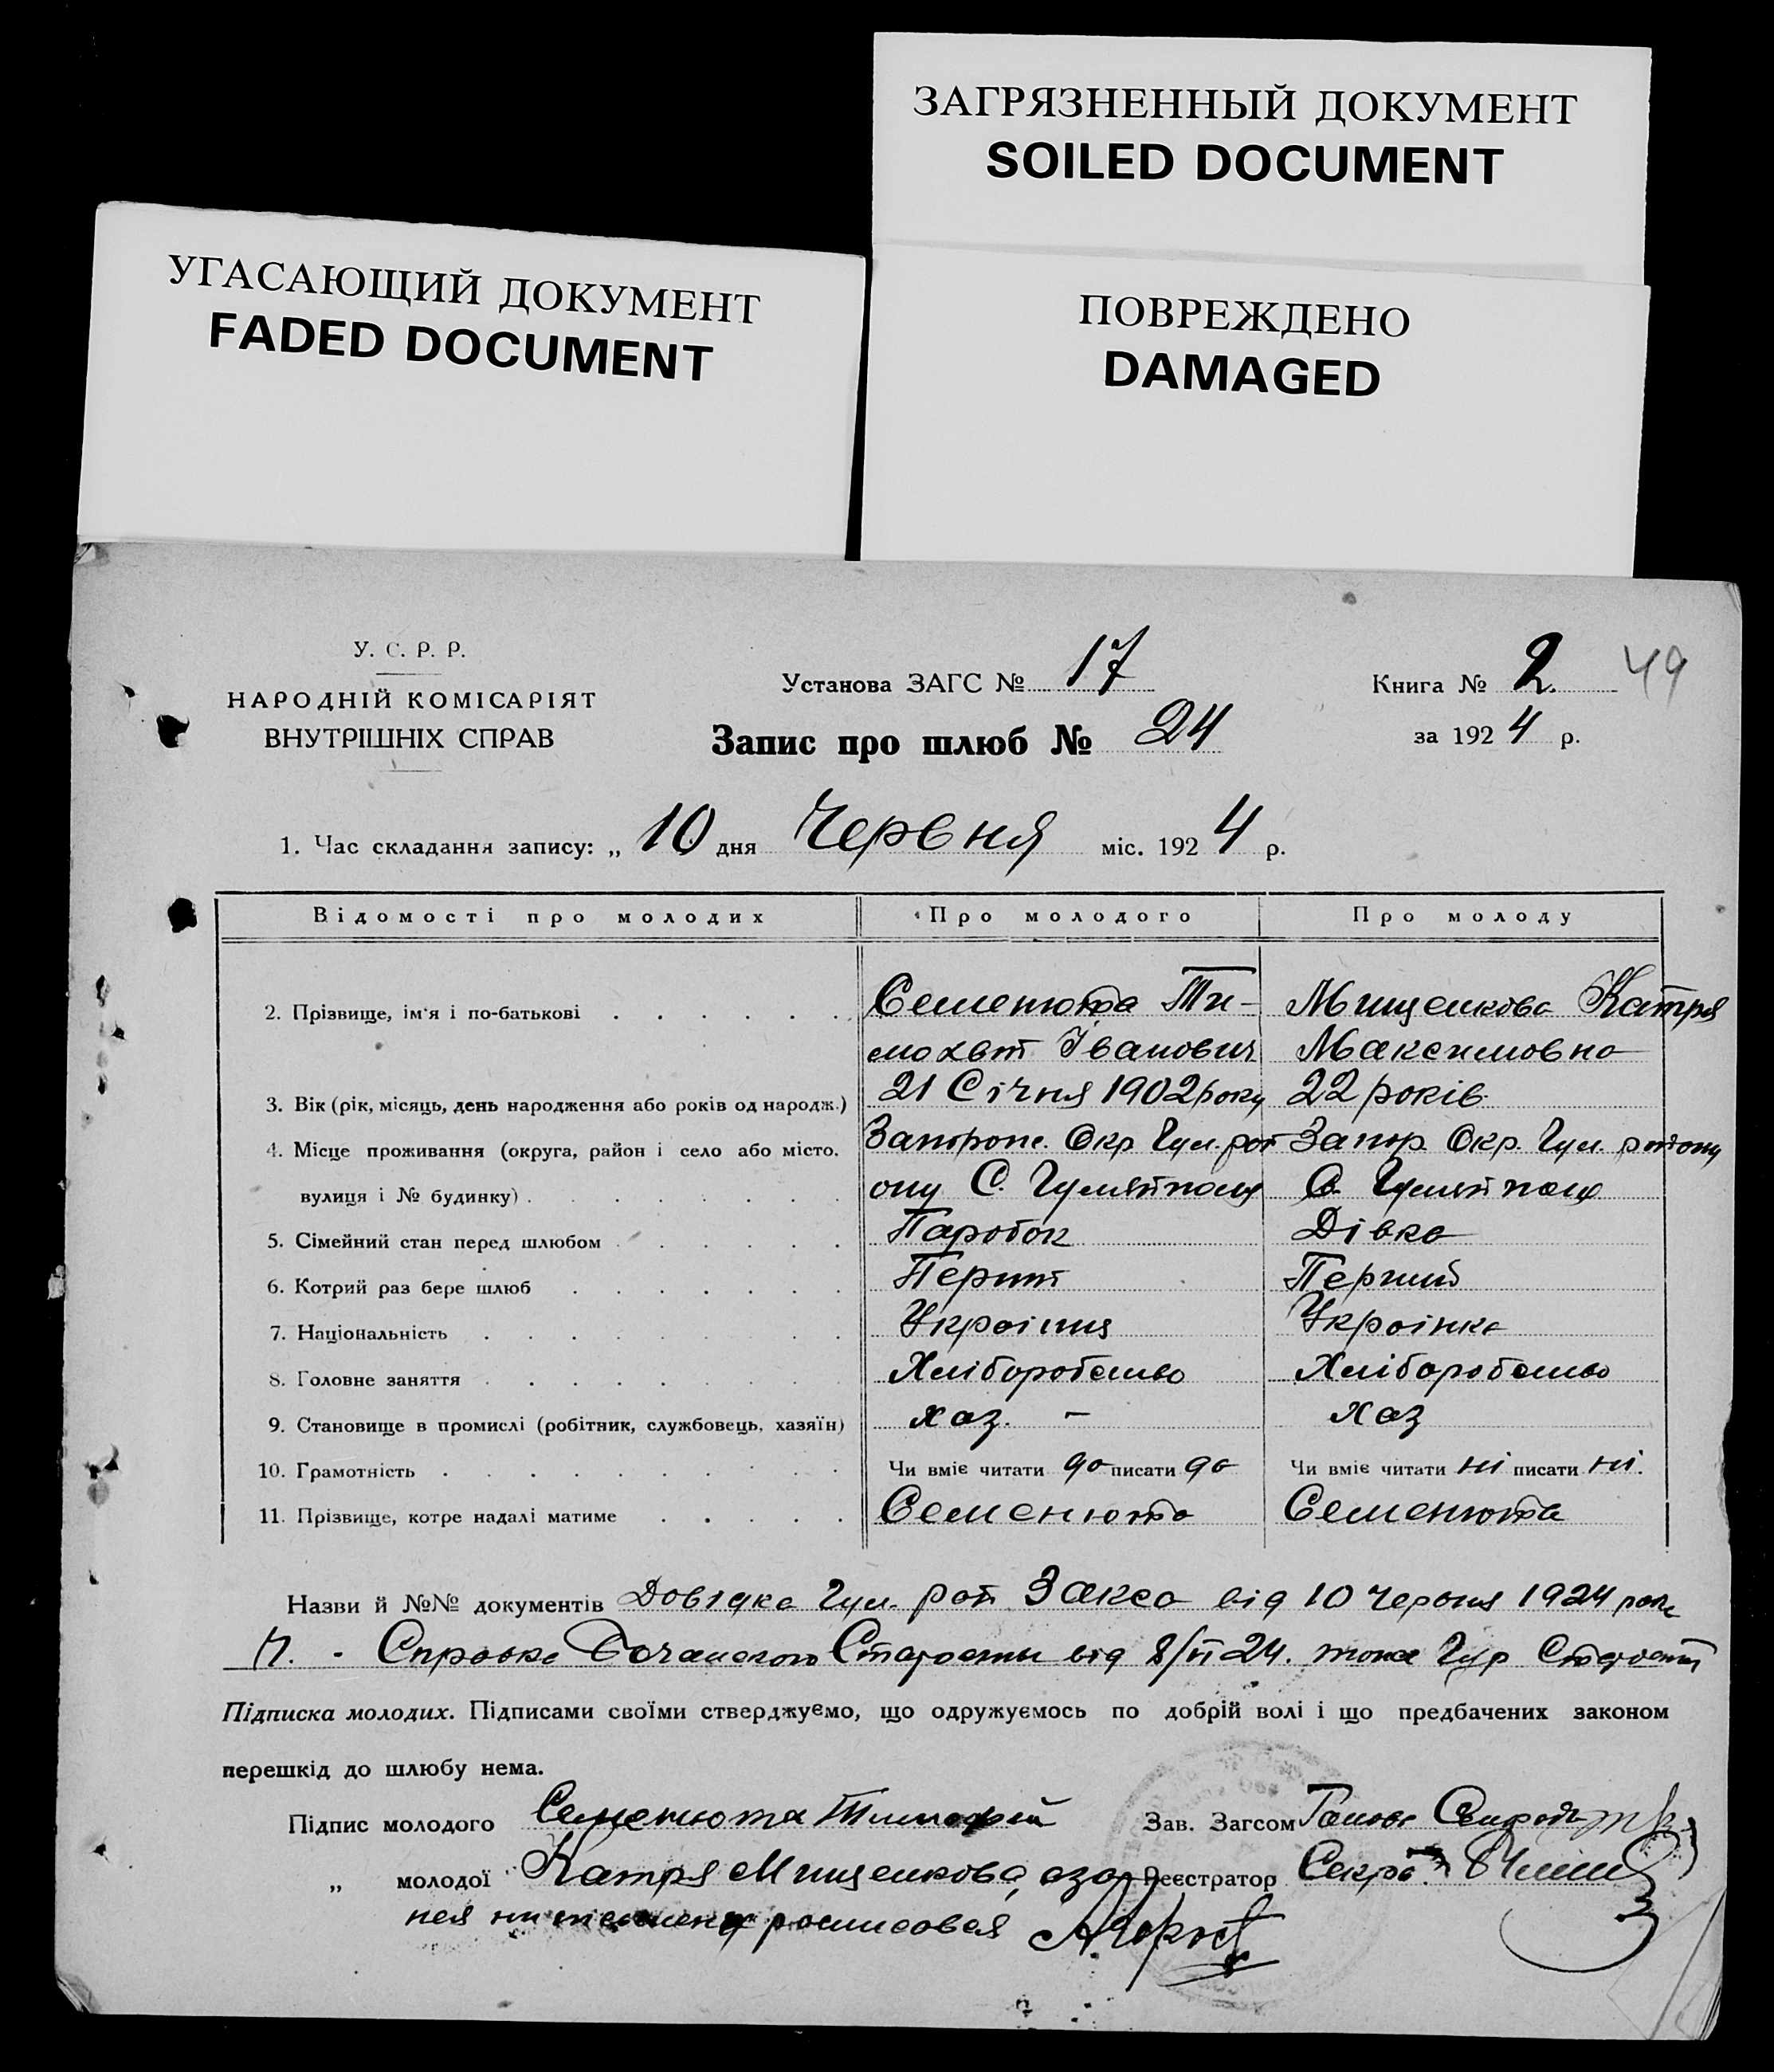 ЗАГРЯЗНЕННЫЙ ДОКУМЕНТ
SOILED DOCUMENT
УГАСАЮЩИЙ ДОКУМЕНТ
FADED DOCUMENT
ПОВРЕЖДЕНО
DAMAGED
У. С. Р. Р.
НАРОДНІЙ КОМІСАРІЯТ
ВНУТРІШНІХ СПРАВ
Установа ЗАГС № 17
Запис про шлюб № 24
Книга № 2. 49
за 1924 р.
1. Час складання запису: „ 10 дня Червня міс. 1924 р.
Відомості про молодих Про молодого Про молоду
2. Прізвище, ім'я і по-батькові Семенюта Ти- Мищенкова Катря
Іванович Максимовна
3. Вік (рік, місяць, день народження або років од народж.) 21 Січня 1902 року 22 років
4. Місце проживання (округа, район і село або місто, Запорож. Окр Гул. рай Запор. Окр. Гул. району
вулиця і № будинку) ону С. Гуляйполу С. Гуляйполу
5. Сімейний стан перед шлюбом Паробок Дівка
6. Котрий раз бере шлюб Перший Перший
7. Національність Україниц Українка
8. Головне заняття Хліборобство Хліборобство
9. Становище в промислі (робітник, службовець, хазяїн) хаз. — хаз
10. Грамотність Чи вміє читати да писати да Чи вміє читати ні писати ні.
11. Прізвище, котре надалі матиме Семенюта Семенюта
Назви й №№ документів Довідка Гул. рай Загса від 10 червня 1924 року
Старосты від 24. тоже Гул Старосты
Підписка молодих. Підписами своїми стверджуємо, що одружуємось по добрій волі і що предбачених законом
перешкід до шлюбу нема.
Підпис молодого Семенюта Тимофей Зав. Загсом
„ молодої Катря Мищенкова, а за Реєстратор Секр.
нея росписовся